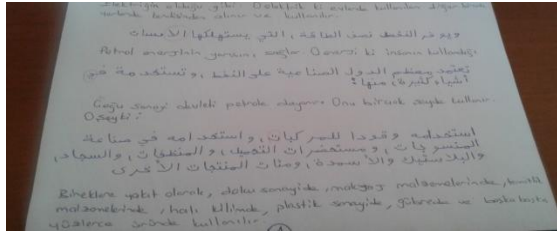 elektriğin olduğu gibi. Elektrik ki evlerde kullanılan diğer
ويوفر النفط نصف الطاقة، التي يستهلكها الأنسان
Petrol enerjinin yarısını sağlar. O enerji ki insanın kullandığı.
تعتمد معظم الدول الصناعية على النفط، وتستخدمه في
أشياء كثيرة، منها:
Çoğu sanayi devleti petrole dayanır. Onu birçok şeyde kullanır.
O şeyler:
استخدامه وقودا للمركبات، واستخدامه في صناعة
المنسوجات، ومستحضرات التجميل، والمنظفات، والسجاد،
والبلاستيك والأسمدة، ومئات المنتجات الأخرى
yakıt olarak, doku sanayinde, makyaj malzemelerinde, temizlik
malzemelerinde, halı kilimde, plastik sanayinde, gübrede ve başka başka
yüzlerce üründe kullanılır.